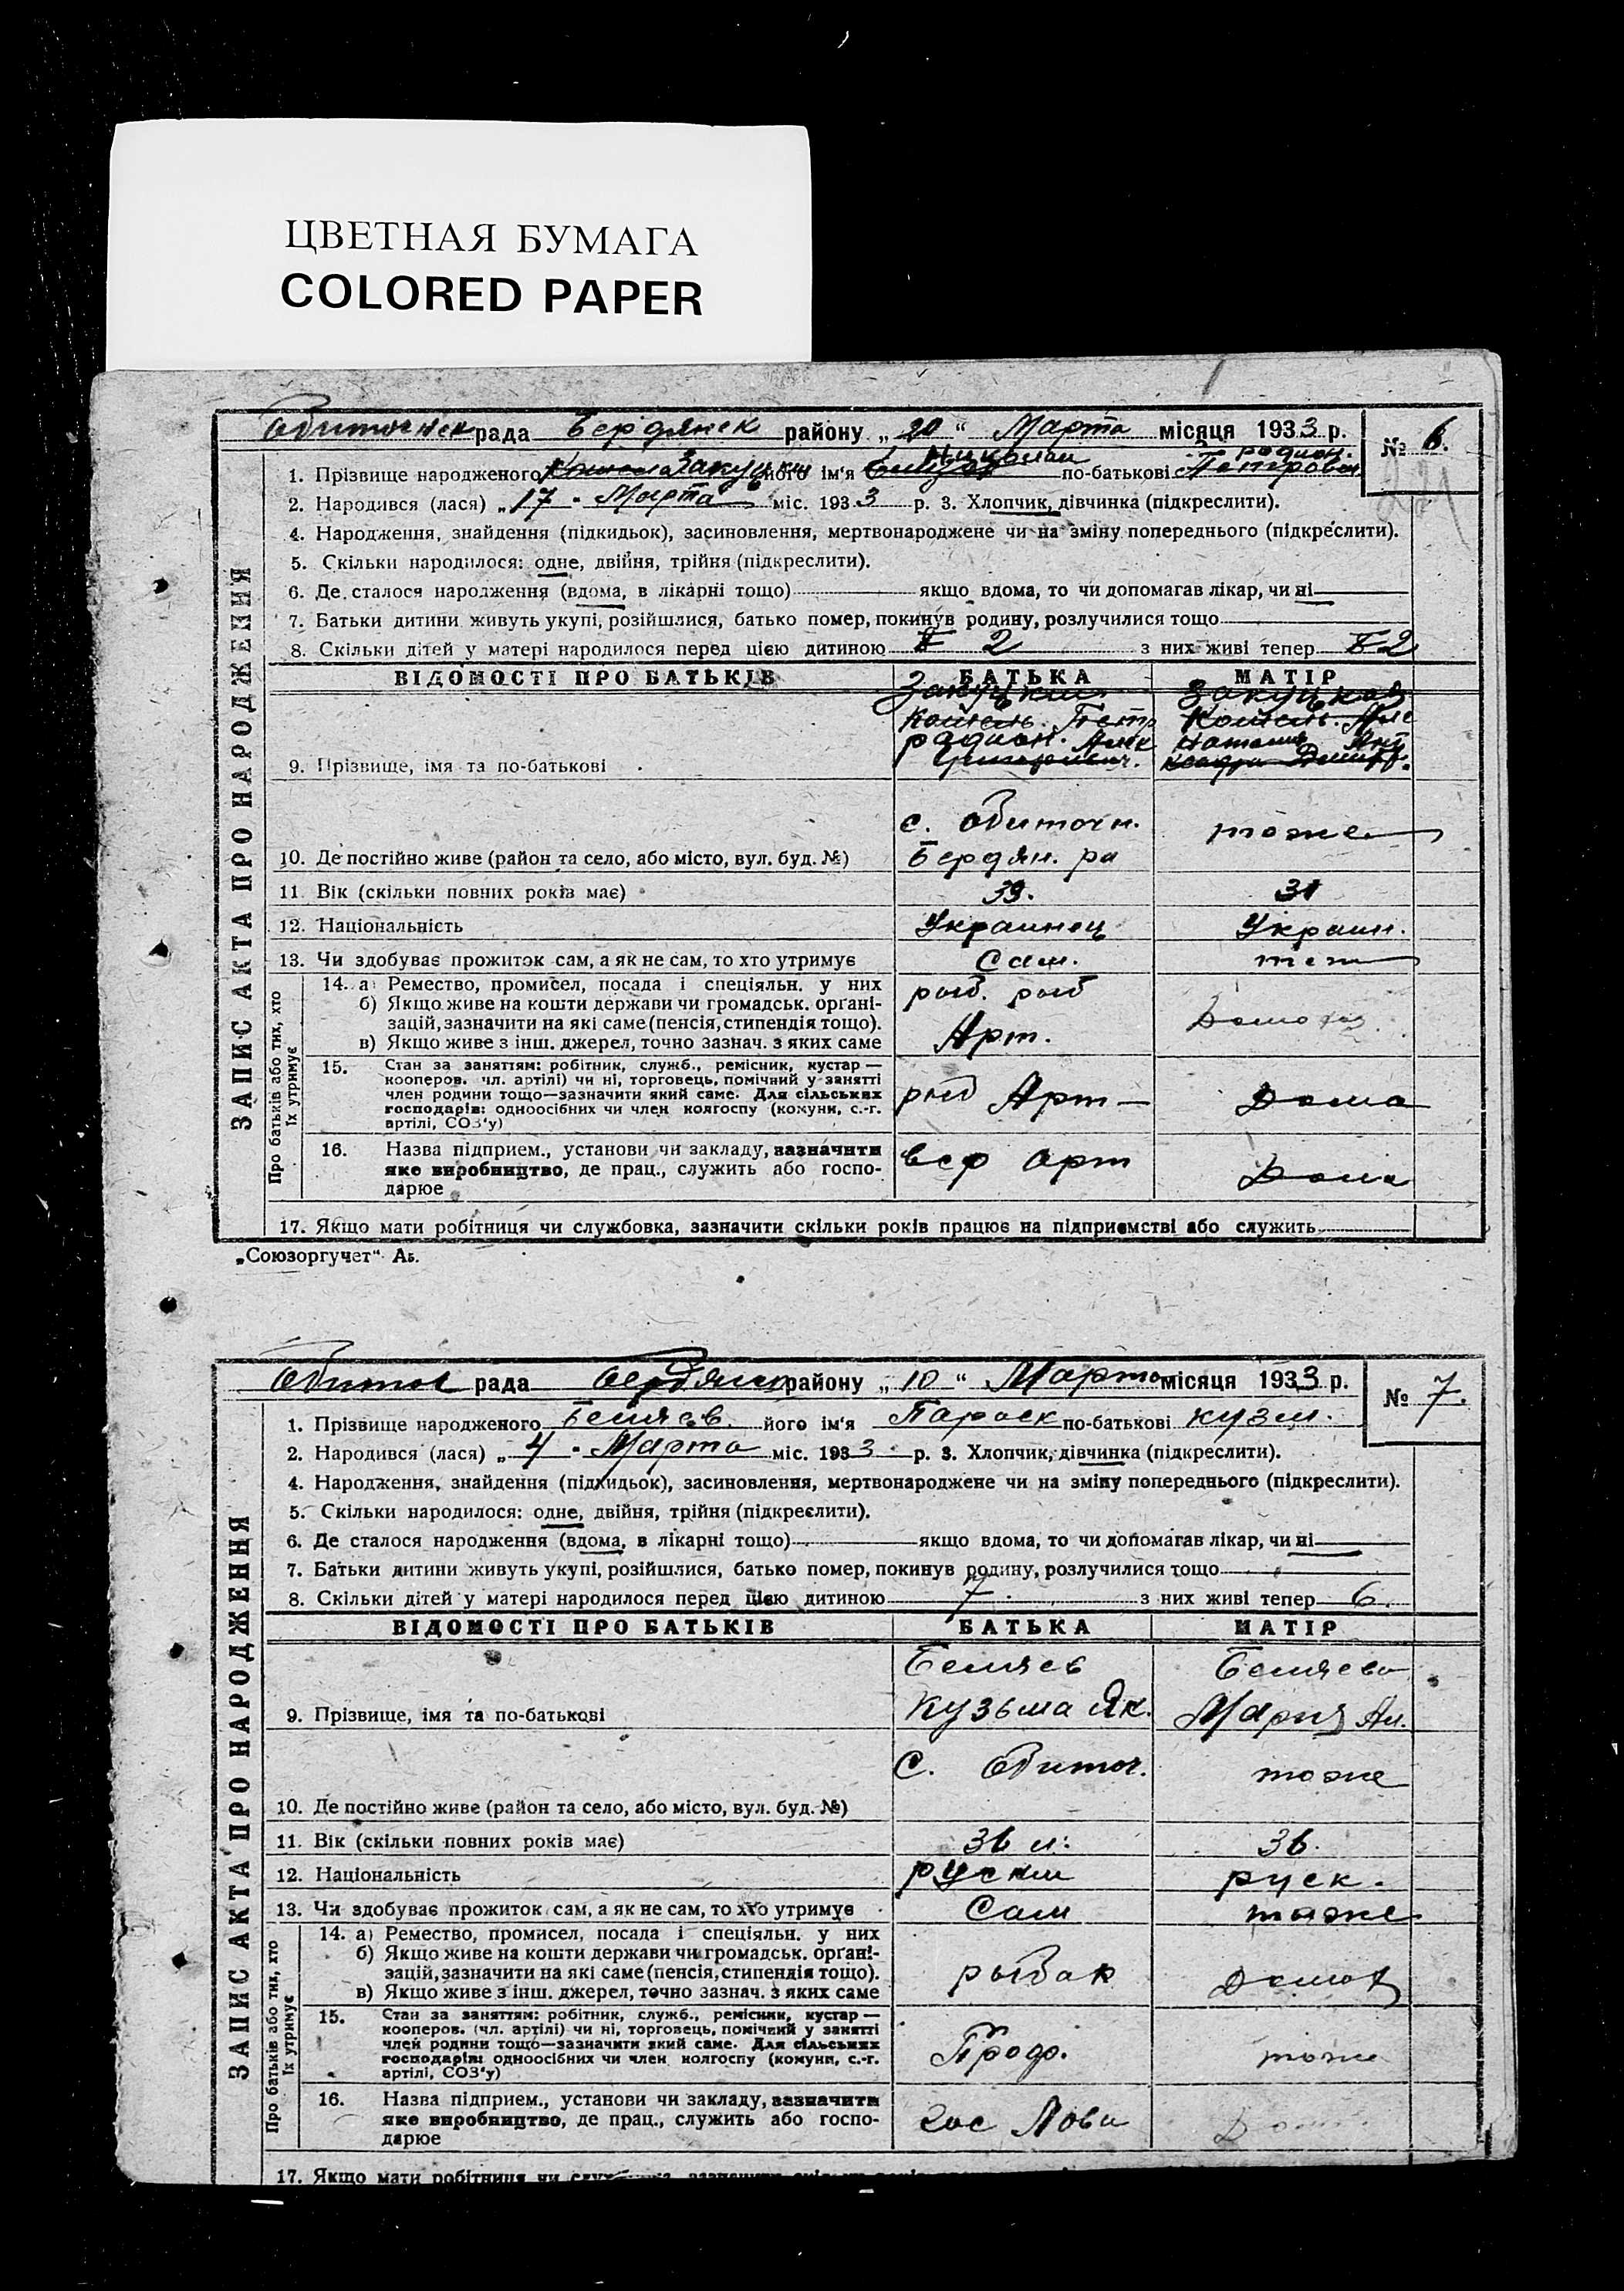 ЦВЕТНАЯ БУМАГА
COLORED PAPER
Обиточнск рада Бердянск району „20“ Марта місяця 1933 р. № 6.
Николай родион.
1. Прізвище народженого Закуцкий його ім'я по-батькові Петрович
2. Народився (лася) „17“ Марта міс. 1933 р. 3. Хлопчик, дівчинка (підкреслити).
4. Народження, знайдення (підкидьок), засиновлення, мертвонароджене чи на зміну попереднього (підкреслити).
5. Скільки народилося: одне, двійня, трійня (підкреслити).
6. Де сталося народження (вдома, в лікарні тощо) якщо вдома, то чи допомагав лікар, чи ні
7. Батьки дитини живуть укупі, розійшлися, батько помер, покинув родину, розлучилися тощо
8. Скільки дітей у матері народилося перед цією дитиною 2 з них живі тепер 2
ВІДОМОСТІ ПРО БАТЬКІВ БАТЬКА МАТІР
Закуцкий Закуцкая
Петр
родион. Алек Наталия
9. Прізвище, імя та по-батькові Григориевич. Дмитр.
с. Обиточн. тоже
10. Де постійно живе (район та село, або місто, вул. буд. №) Бердян. ра
11. Вік (скільки повних років має) 39. 31
12. Національність Украинец Украин.
13. Чи здобуває прожиток сам, а як не сам, то хто утримує Сам.
14. а) Ремество, промисел, посада і спеціяльн. у них рыб. рыб
б) Якщо живе на кошти держави чи громадськ. орґані-
зацій, зазначити на які саме (пенсія, стипендія тощо). Домохоз
в) Якщо живе з інш. джерел, точно зазнач. з яких саме Арт.
15. Стан за заняттям: робітник, служб., ремісник, кустар —
кооперов. чл. артілі) чи ні, торговець, помічний у занятті
член родини тощо—зазначити який саме. Для сільських рыб Арт— Дома
господарів: одноосібних чи член колгоспу (комуни, с.-г.
артілі, СОЗ'у)
16. Назва підприєм., установи чи закладу, зазначити арт
яке виробництво, де прац., служить або госпо- Дома
дарює
17. Якщо мати робітниця чи службовка, зазначити скільки років працює на підприємстві або служить
„Союзоргучет“ Аь.
ЗАПИС АКТА ПРО НАРОДЖЕННЯ
Про батьків або тих, хто
їх утримує
Обиточ рада Бердянск району „10“ Марта місяця 1933 р. № 7.
1. Прізвище народженого Беляев. його ім'я Параск по-батькові Кузм.
2. Народився (лася) „4“ Марта міс. 1933 р. 3. Хлопчик, дівчинка (підкреслити).
4. Народження, знайдення (підкидьок), засиновлення, мертвонароджене чи на зміну попереднього (підкреслити).
5. Скільки народилося: одне, двійня, трійня (підкреслити).
6. Де сталося народження (вдома, в лікарні тощо) якщо вдома, то чи допомагав лікар, чи ні
7. Батьки дитини живуть укупі, розійшлися, батько помер, покинув родину, розлучилися тощо
8. Скільки дітей у матері народилося перед цією дитиною 7 з них живі тепер 6.
ВІДОМОСТІ ПРО БАТЬКІВ БАТЬКА МАТІР
Беляев Беляева
9. Прізвище, імя та по-батькові Кузьма Як. Мария Ал.
С. Обиточ. тоже
10. Де постійно живе (район та село, або місто, вул. буд. №)
11. Вік (скільки повних років має) 36 л. 36.
12. Національність руский руск.
13. Чи здобуває прожиток сам, а як не сам, то хто утримує Сам тоже
14. а) Ремество, промисел, посада і спеціяльн. у них
б) Якщо живе на кошти держави чи громадськ. орґані-
зацій, зазначити на які саме (пенсія, стипендія тощо). рыбак Домох
в) Якщо живе з інш. джерел, точно зазнач. з яких саме
15. Стан за заняттям: робітник, служб., ремісник, кустар —
кооперов. (чл. артілі) чи ні, торговець, помічний у занятті
член родини тощо—зазначити який саме. Для сільських тоже
господарів: одноосібних чи член колгоспу (комуни, с.-г.
артілі, СОЗ'у)
16. Назва підприєм., установи чи закладу, зазначити
яке виробництво, де прац., служить або госпо- гос Лов
дарює
17. Якщо мати робітниця чи
ЗАПИС АКТА ПРО НАРОДЖЕННЯ
Про батьків або тих, хто
їх утримує